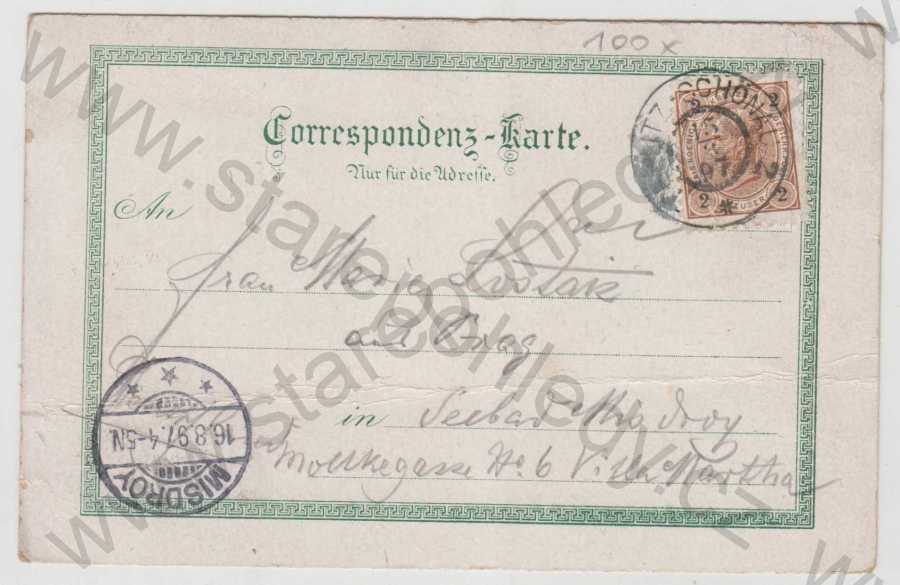 100 x
Correspondenz-Karte.
Nur für die Adresse.
An
Frau Marie
aus Prag
in Seebad Misdroy
Moltkegasse No. 6 Villa Martha
TZ-SCHÖNAU
2 2
2 2
97
MISDROY
16.8.97. 4-5N.
www.starepohledy.cz